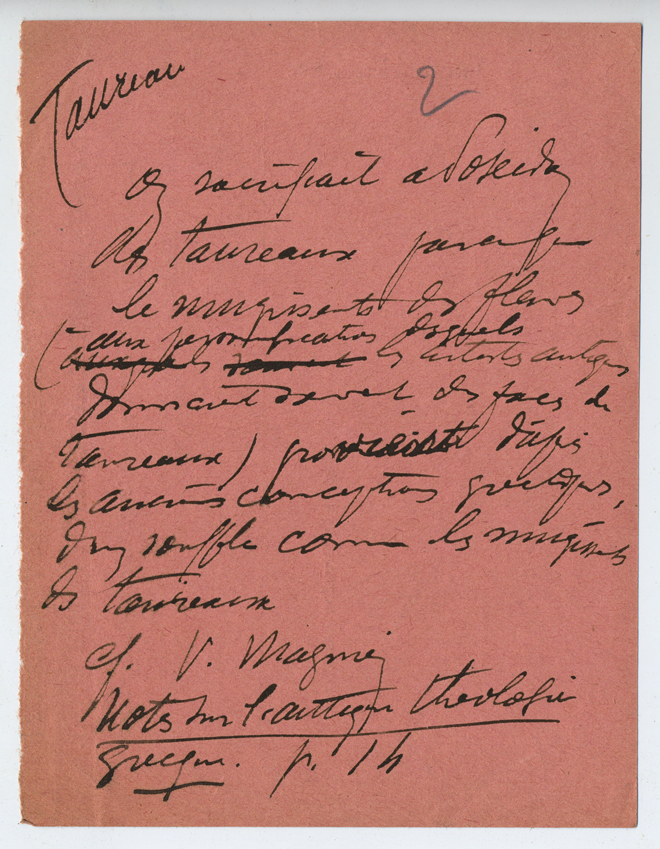 Taureau
2
On sacrifiait a Poseidon
des taureaux parce que
le mugissements des fleuves
(aux personnifications desquels
les artistes antiques
donnaient souvent des faces de
taureaux) provenait d'après
les anciens conceptions grecques,
d'un souffle comme les mugissements
de taureaux
cf. V. Magnien
Notes sur l'antique théologie
grecque. p. 14